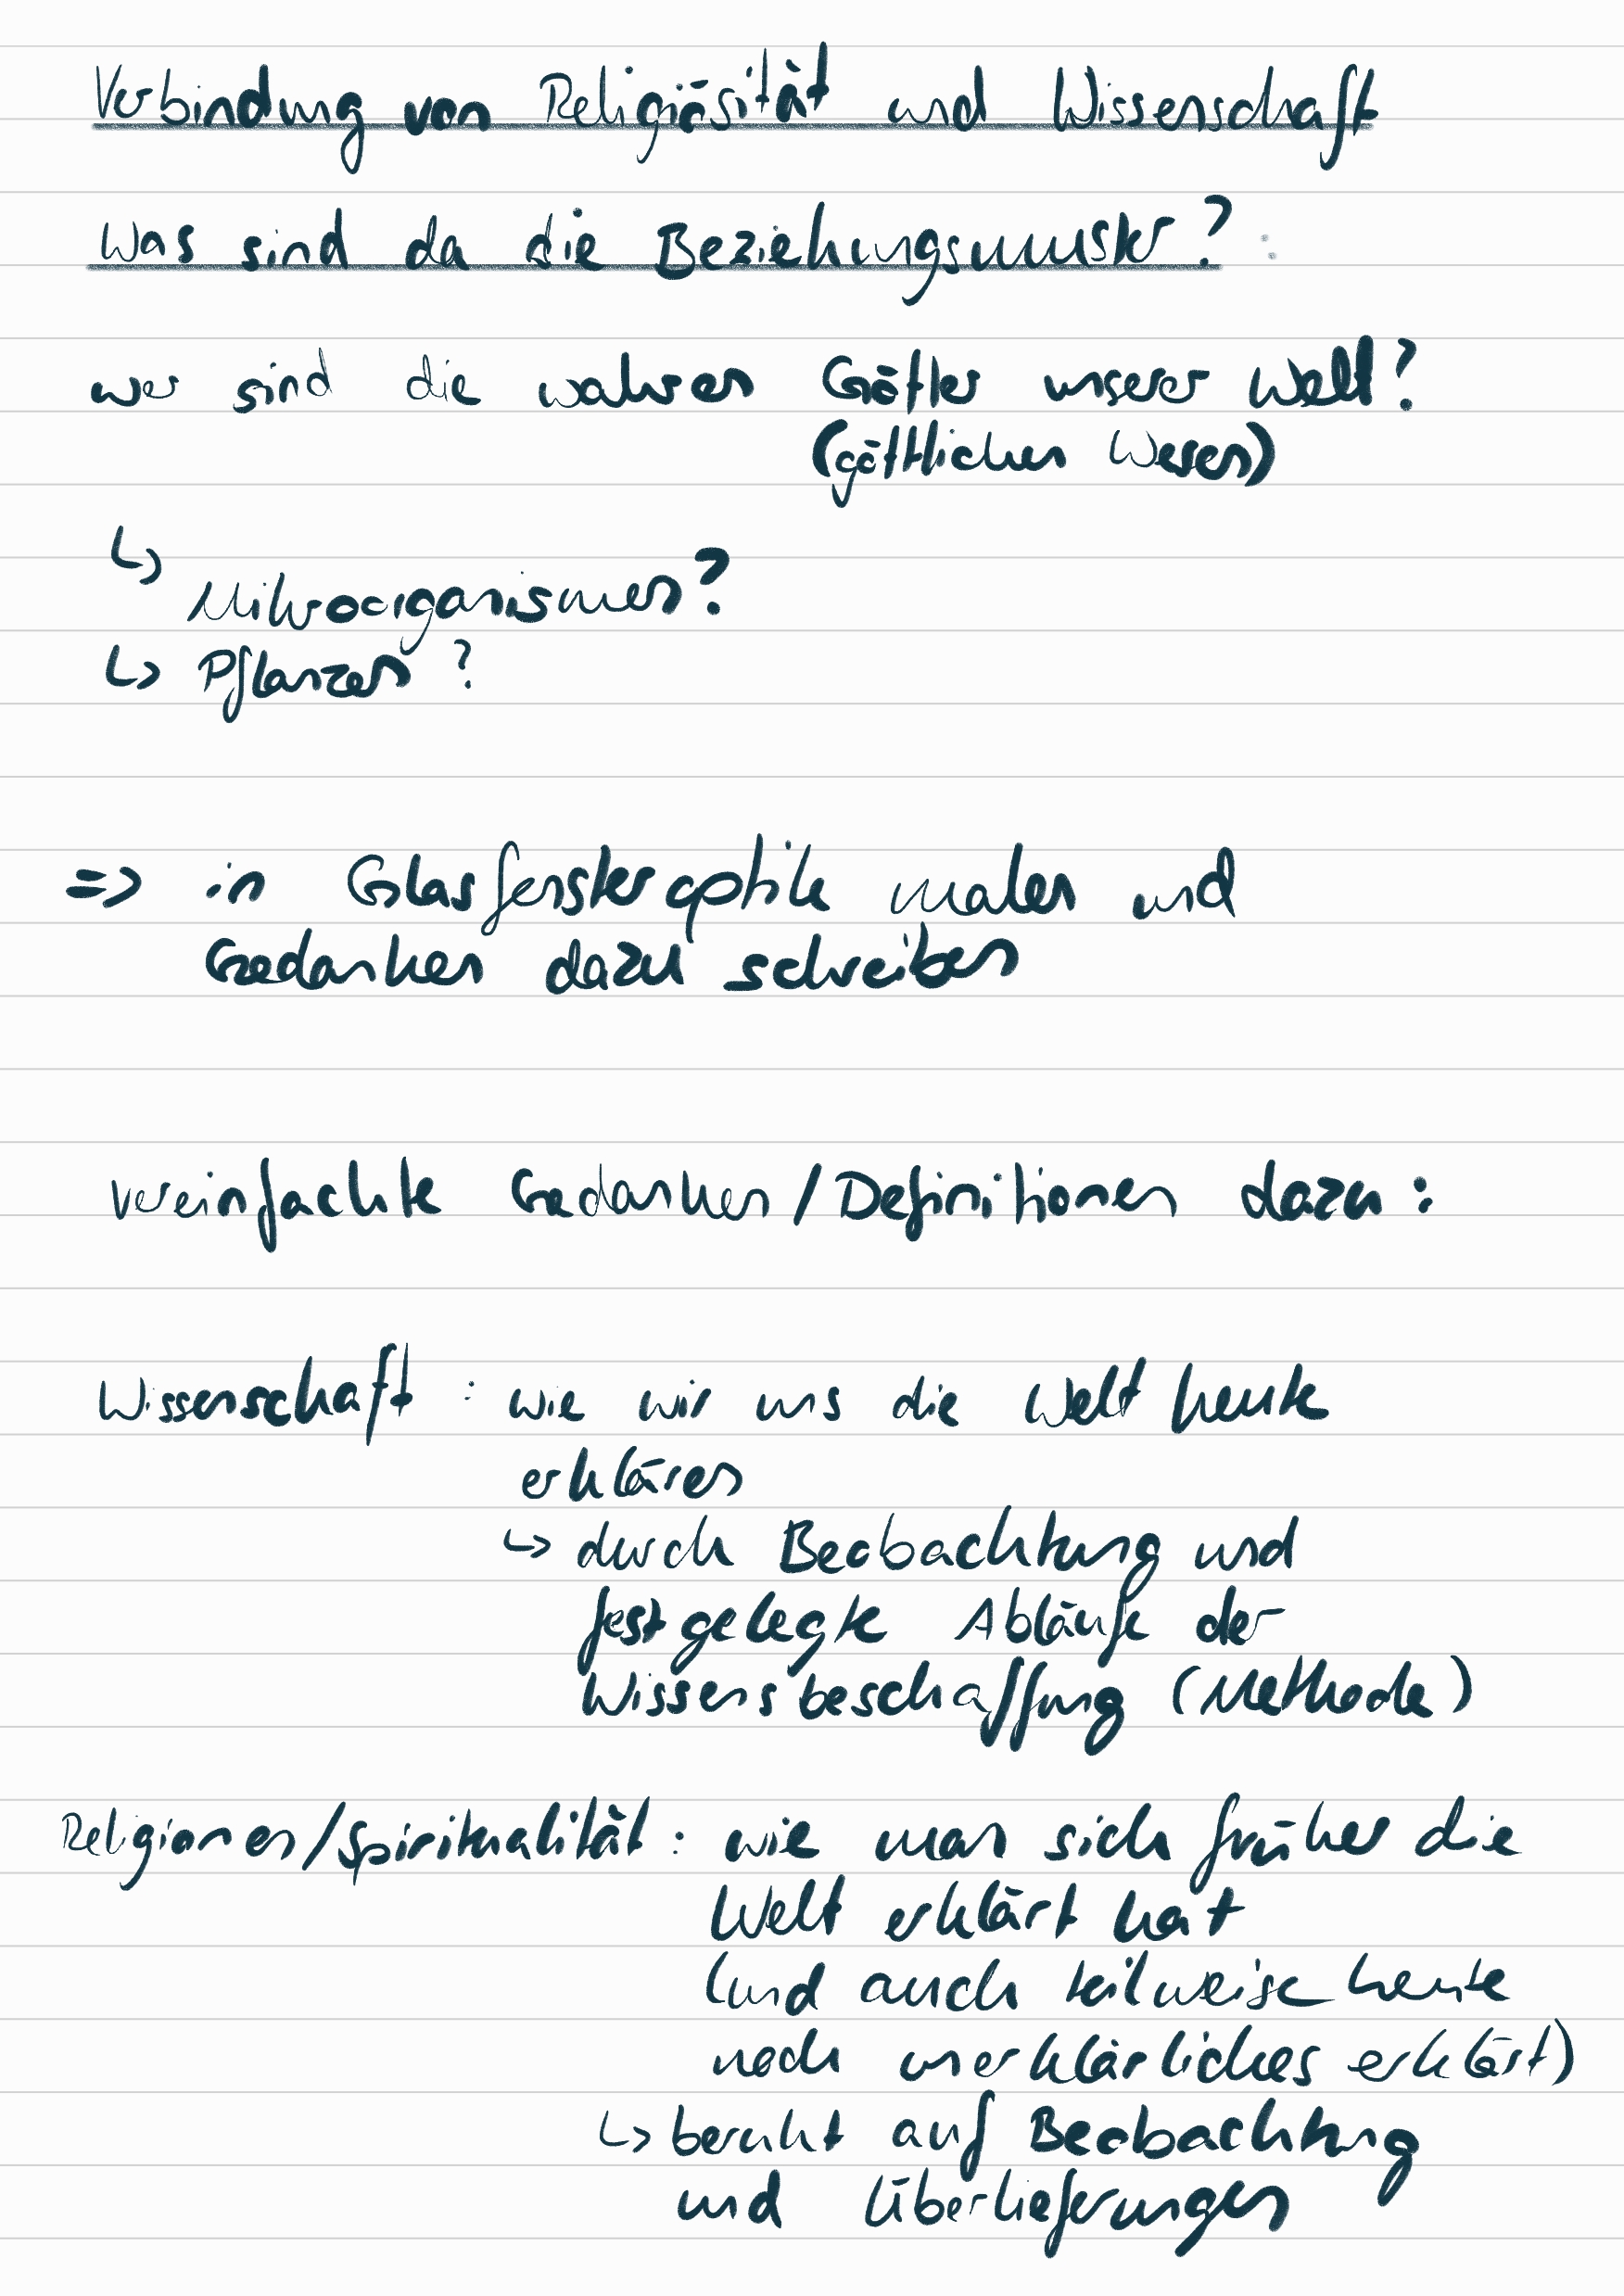 Verbindung von Religiösität und Wissenschaft
Was sind da die Beziehungsmuster? :
wer sind die wahren Götter unserer Welt?
(göttlichen Wesen)
↳ Mikroorganismen?
↳ Pflanzen?
=> in Glasfensteroptik malen und
Gedanken dazu schreiben
vereinfachte Gedanken/Definitionen dazu:
Wissenschaft : wie wir uns die Welt heute
erklären
↳ durch Beobachtung und
festgelegte Abläufe der
Wissensbeschaffung (Methode)
Religionen/Spiritualität : wie man sich früher die
Welt erklärt hat
(und auch teilweise heute
noch unerklärliches erklärt)
↳ beruht auf Beobachtung
und Überlieferungen